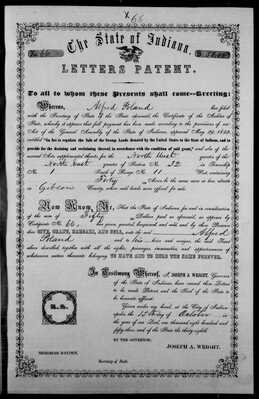 The State of Indiana.
LETTERS PATENT.
To all to whom these Presents shall come—Greeting:
Whereas, Alfred Poland has filed
with the Secretary of State
of this State, whereby it appears that full payment has been made according to the provisions of an
Act of the General Assembly of the State of Indiana, approved May 29, 1852,
entitled "An Act to regulate the Sale of the Swamp Lands donated by the United States to the State of Indiana, and to
provide for the draining and reclaiming thereof in accordance with the condition of said grant," and acts of the
several Acts supplemental thereto for the North West quarter of the
North West quarter of Section No. 32 in Township
No. 1 of Range No. 11 West containing
Forty Acres
Gibson County, when sold
Now Know, Ye, That the State of Indiana for and in consideration
of the sum of Fifty Dollars paid as aforesaid, as appears by
Certificate No. 66, has given granted bargained and sold, and by these Presents
does GIVE, GRANT, BARGAIN, AND SELL, unto the said Alfred
Poland and to his heirs and assigns, the said Tract
above described together with all the rights, privileges, immunities, and appurtenances of
whatsoever nature thereunto belonging TO HAVE AND TO HOLD THE SAME FOREVER.
In Testimony Whereof, I JOSEPH A. WRIGHT, Governor
of the State of Indiana have caused these Letters
to be made Patent and the Seal of the State to
be hereunto affixed.
Given under my hand, at the City of Indian-
apolis the 12th day of October in
the year of our Lord, one thousand eight hundred and
fifty three and of the State the thirty eighth
BY THE GOVERNOR,
JOSEPH A. WRIGHT.
L. S.
NEHEMIAH HAYDEN,
Secretary of State.